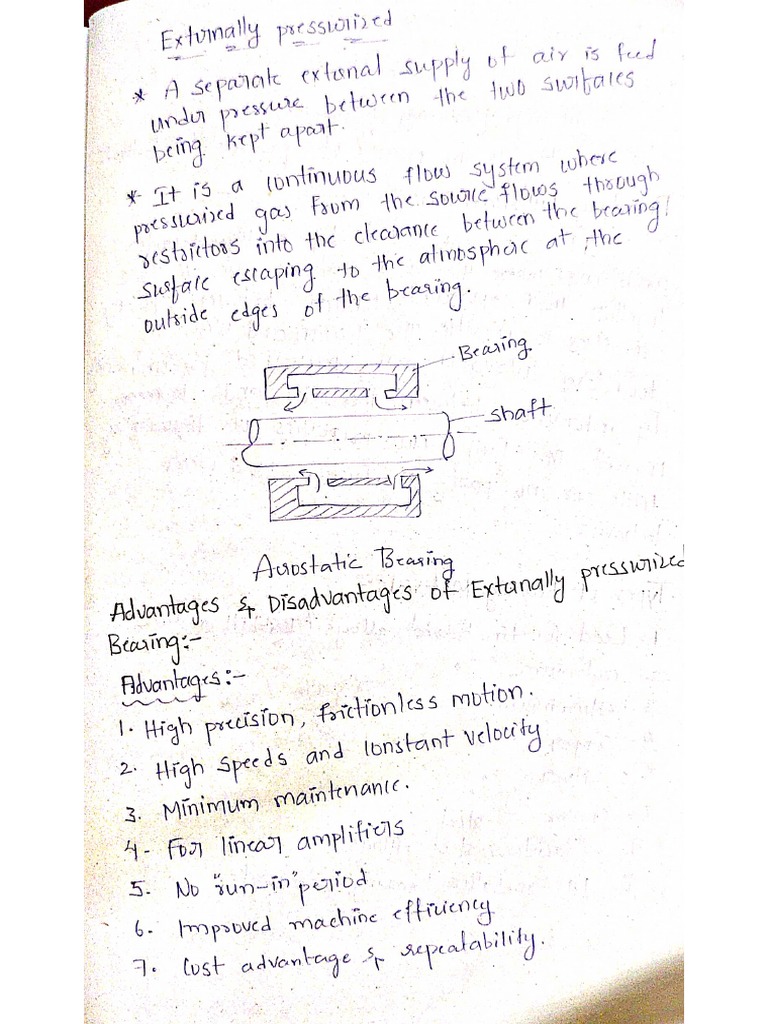 Externally pressurized
* A separate external supply of air is feed
under pressure between the two surfaces
being kept apart.
* It is a continuous flow system where
pressurized gas from the source flows through
restrictors into the clearance between the bearing
surface escaping to the atmosphere at the
outside edges of the bearing.
Bearing
shaft
Aerostatic Bearing
Advantages & Disadvantages of Externally pressurized
Bearing:-
Advantages:-
1. High precision, frictionless motion.
2. High speeds and constant velocity
3. Minimum maintenance.
4- For linear amplifiers
5. No "run-in" period
6. Improved machine efficiency
7. Cost advantage & repeatability.